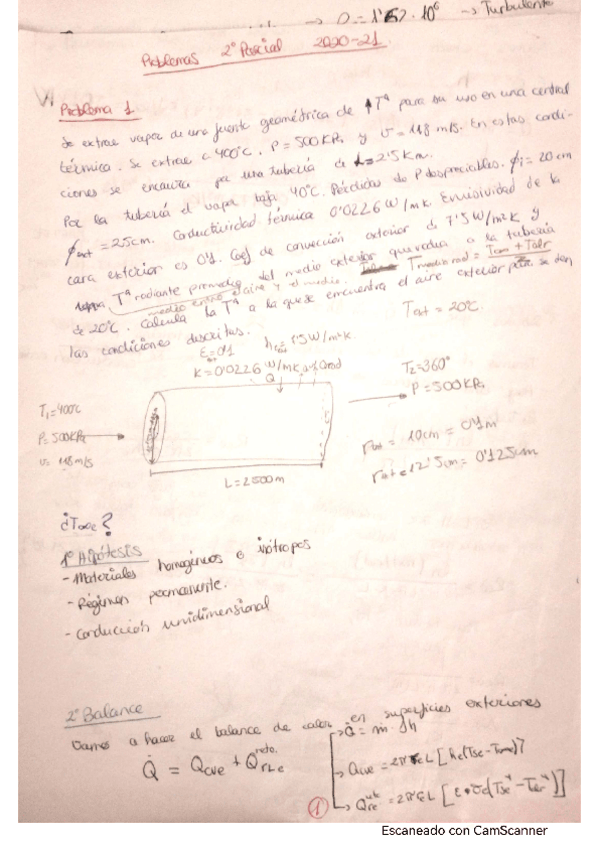 → D = 1'67 · 10⁶ → Turbulento
Problemas 2º Parcial 2020-21.
Problema 1
Se extrae vapor de una fuente geométrica de ↑Tª para su uso en una central
térmica. Se extrae a 400ºC, P = 500KPa y v = 118 m/s. En estas condi-
ciones se encauza por una tubería de L = 2'5 Km.
Por la tubería el vapor baja 40ºC. Pérdidas de P despreciables. ϕi = 20 cm
ϕext = 25cm. Conductividad térmica 0'0226 W/mK. Emisividad de la
cara exterior es 0'1. Coef de convección exterior de 7'5 W/m²K y
Tª radiante promedio del medio exterior que rodea a la tubería
medio entre el aire y el medio. Tmedio rad =
de 20ºC. Calcula la Tª a la que se encuentra el aire exterior para se den
las condiciones descritas.
Text = 20ºC.
ε = 0'1
K = 0'0226 W/mK
Q
T₁ = 400ºC
P = 500KPa
v = 118 m/s
T₂ = 360º
P = 500KPa
L = 2500m
= 10cm = 0'1m
rext = 12'5cm = 0'125m
¿T∞e?
1º Hipótesis
- Materiales homogéneos e isótropos
- Régimen permanente.
- Conducción unidimensional
2º Balance
Vamos a hacer el balance de calor en superficies exteriores
Q̇ = Qcve + Q̇rLe neto.
→ Q̇ = ṁ · Δh
→ Qcve = 2πreL [hc(Tse - T∞e)]
→ = 2πreL [ε · σ(Tse⁴ - Tar⁴)]
①
Escaneado con CamScanner